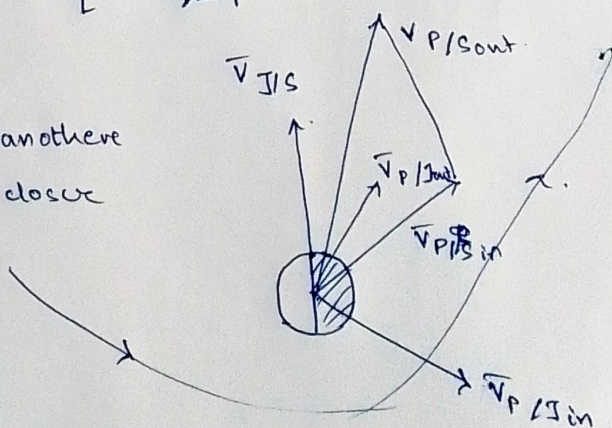 V P/Sout.
V̄ J/S
anothere
closer
V̄ P/Jout
V̄ P/S in
V̄ P/J in